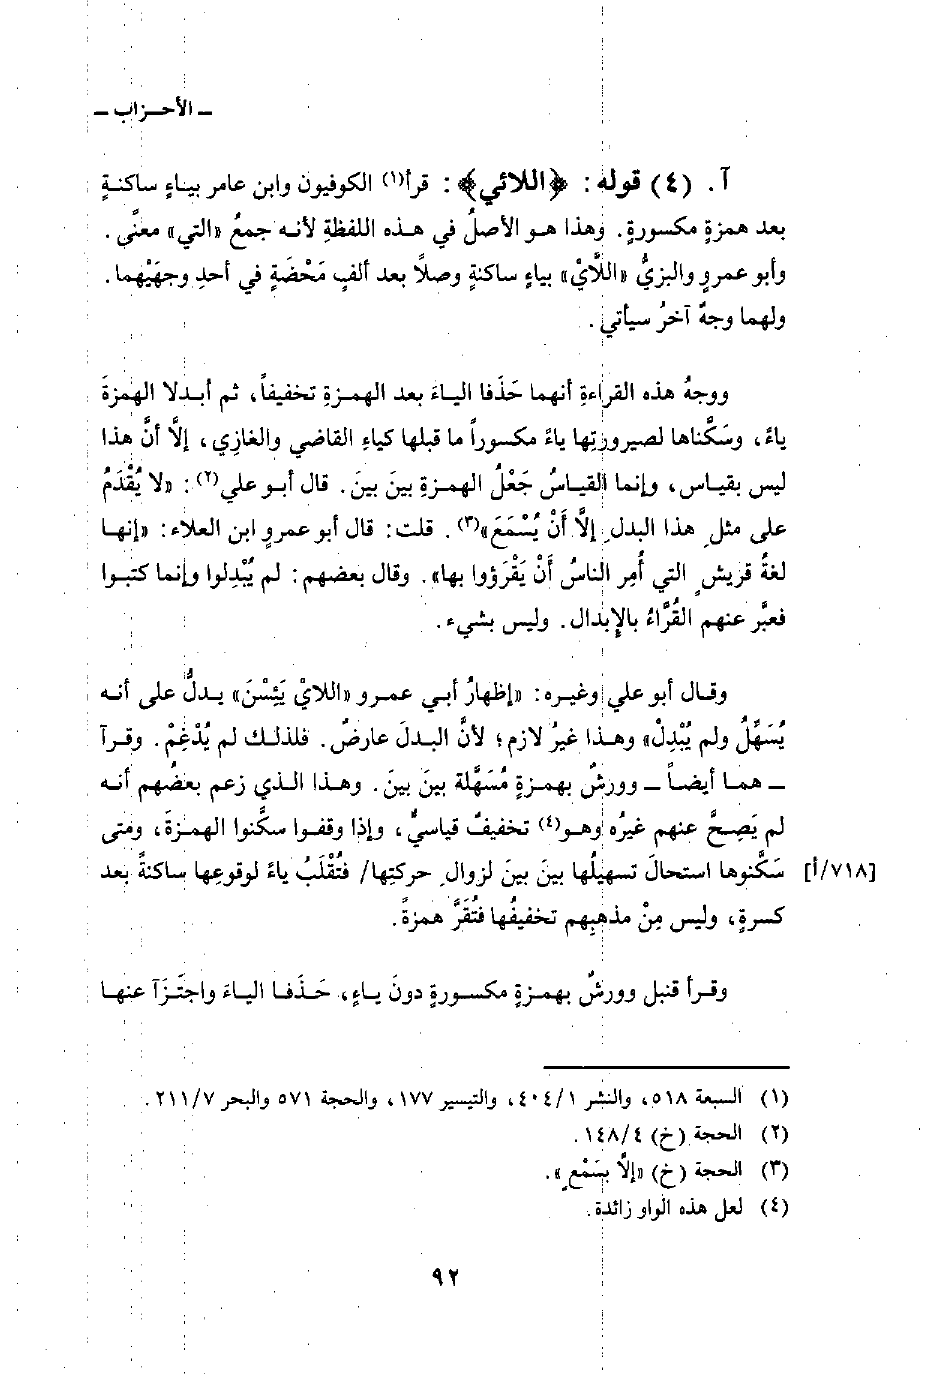 ـ الأحـزاب ـ
آ. (٤) قوله: ﴿اللائي﴾: قرأ(١) الكوفيون وابن عامر بيـاءٍ ساكنـةٍ
بعد همزةٍ مكسورةٍ. وهذا هـو الأصلُ في هـذه اللفظةِ لأنـه جمعُ «التي» معنًى.
وأبو عمروٍ والبزيُّ «اللَّايْ» بياءٍ ساكنةٍ وصلاً بعد ألفٍ مَحْضَةٍ في أحدِ وجهَيْهما.
ولهما وجهٌ آخرُ سيأتي.
ووجهُ هذه القراءةِ أنهما حَذَفا اليـاءَ بعد الهمـزةِ تخفيفاً، ثم أبـدلا الهمزةَ
ياءً، وسَكَّناها لصيرورتِها ياءً مكسوراً ما قبلها كياءِ القاضي والغازِي، إلَّا أنَّ هذا
ليس بقيـاس، وإنما القياسُ جَعْلُ الهمـزةِ بينَ بينَ. قال أبـو علي(٢): «لا يُقْدَمُ
على مثلِ هذا البدلِ إلَّا أَنْ يُسْمَعَ»(٣). قلت: قال أبو عمروٍ ابن العلاء: «إنهـا
لغةُ قريشٍ التي أُمِر الناسُ أَنْ يَقْرَؤوا بها». وقال بعضهم: لم يُبْدِلوا وإنما كتبـوا
فعبَّر عنهم القُرَّاءُ بالإِبدال. وليس بشيء.
وقـال أبو علي وغيـره: «إظهارُ أبـي عمـرو «اللايْ يَئِسْنَ» يـدلُّ على أنـه
يُسَهِّلُ ولم يُبْدِلْ» وهـذا غيرُ لازم؛ لأنَّ البـدلَ عارضٌ. فلذلـك لم يُدْغِمْ. وقـرآ
ـ همـا أيضـاً ـ وورشٌ بهمـزةٍ مُسَهَّلة بينَ بينَ. وهـذا الـذي زعم بعضُهم أنـه
لم يَصِحَّ عنهم غيرُه وهـو(٤) تخفيفٌ قياسيٌّ، وإذا وقفـوا سكَّنوا الهمـزةَ، ومتى
سَكَّنوها استحالَ تسهيلُها بينَ بينَ لزوالِ حركتِها/ فتُقْلَبُ ياءً لوقوعِها ساكنةً بعد [٧١٨/أ]
كسرةٍ، وليس مِنْ مذهبِهم تخفيفُها فتُقَرَّ همزةً.
وقـرأ قنبل وورشٌ بهمـزةٍ مكسـورةٍ دونَ يـاءٍ، حَـذَفـا اليـاءَ واجتَـزَآ عنهـا
(١) السبعة ٥١٨، والنشر ٤٠٤/١، والتيسير ١٧٧، والحجة ٥٧١ والبحر ٢١١/٧.
(٢) الحجة (خ) ١٤٨/٤.
(٣) الحجة (خ) «إلَّا بسَمْعٍ».
(٤) لعل هذه الواو زائدة.
٩٢